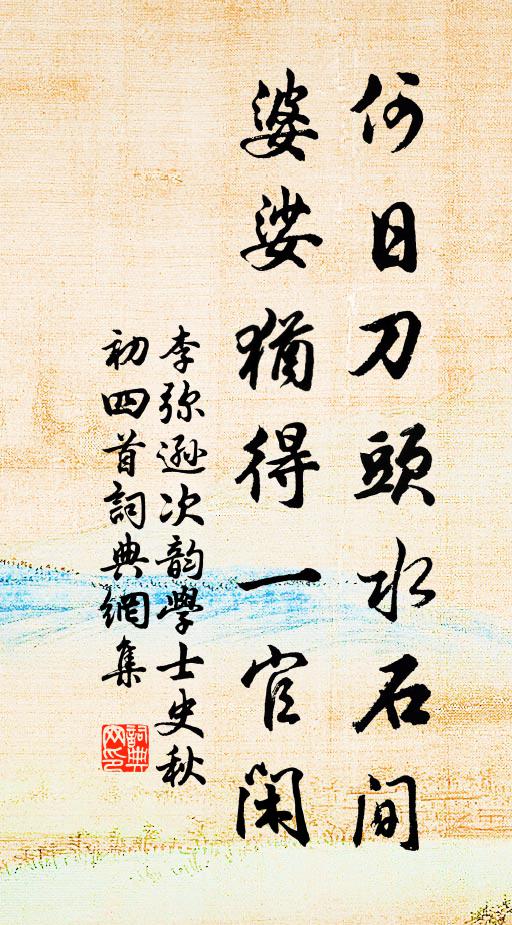 何日刀頭水石间
婆娑猶得一官闲
李弥遜次韵學士史秋
初四首詞典網集
詞典
网印